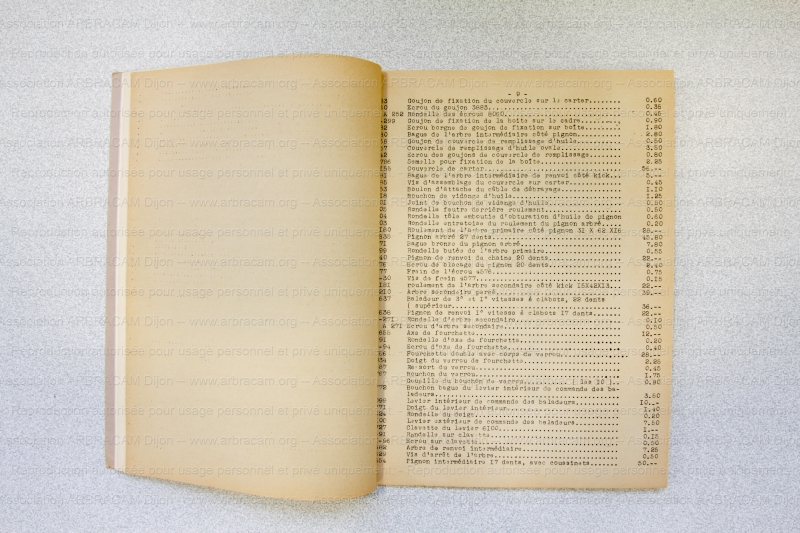 - 9 -
Goujon de fixation du couvercle sur le carter........ 0.60
Ecrou du goujon 3883. 0.35
A 252 Rondelle des écrous 8060. 0.45
Goujon de fixation de la boîte sur le cadre 0.90
Ecrou borgne de goujon de fixation sur boîte 1.80
Bague de l'arbre intermédiaire côté pignon 2.80
Goujon de couvercle de remplissage d'huile 0.50
Couvercle de remplissage d'huile ovale 3.50
Ecrou des goujons de couvercle de remplissage 0.60
Semelle pour fixation de la boîte 2.25
Couvercle de carter 56.--
Bague de l'arbre intermédiaire de renvoi côté kick 3.--
Vis d'assemblage du couvercle sur carter 0.45
Boulon d'attache du câble de débrayage 1.10
Bouchon de vidange d'huile 1.25
Joint de bouchon de vidange d'huile 0.50
Rondelle feutre derrière roulement 0.50
Rondelle tôle emboutie d'obturation d'huile de pignon 0.60
Rondelle entretoise du roulement du pignon arbré 0.20
Roulement de l'arbre primaire côté pignon 31 X 62 X16 28.--
Pignon arbré 27 dents 45.80
Bague bronze du pignon arbré 7.80
Rondelle butée de l'arbre primaire 0.55
Pignon de renvoi de chaîne 20 dents 22.--
Ecrou de blocage du pignon 20 dents 2.40
Frein de l'écrou 4076 0.75
Vis de frein 4077 0.15
roulement de l'arbre secondaire côté kick 15X42X13 22.--
Arbre secondaire percé 39.--
Baladeur de 3° et 1° vitesses à clabots, 22 dents
( supérieur 36.--
Pignon de renvoi 1° vitesse à clabots 17 dents 22.--
Rondelle d'arbre secondaire 0.10
A 271 Ecrou d'arbre secondaire 0.50
Axe de fourchette 12.--
Rondelle d'axe de fourchette 0.20
Ecrou d'axe de fourchette 0.40
Fourchette double avec corps de verrou 28.--
Doigt du verrou de fourchette 2.25
Ressort du verrou 0.45
Bouchon du verrou 1.75
Goupille du bouchon de verrou ( les 10 ) 0.80
Bouchon bague du levier intérieur de commande des ba-
ladeurs 3.50
Levier intérieur de commande des baladeurs 10.--
Doigt du levier intérieur 1.40
Rondelle du doigt 0.20
Levier extérieur de commande des baladeurs 7.50
Clavette du levier 6100 1.--
Rondelle sur clavette 0.15
Ecrou sur clavette 0.50
Arbre de renvoi intermédiaire 7.25
Vis d'arrêt de l'arbre 0.50
Pignon intermédiaire 17 dents, avec coussinets 50.--